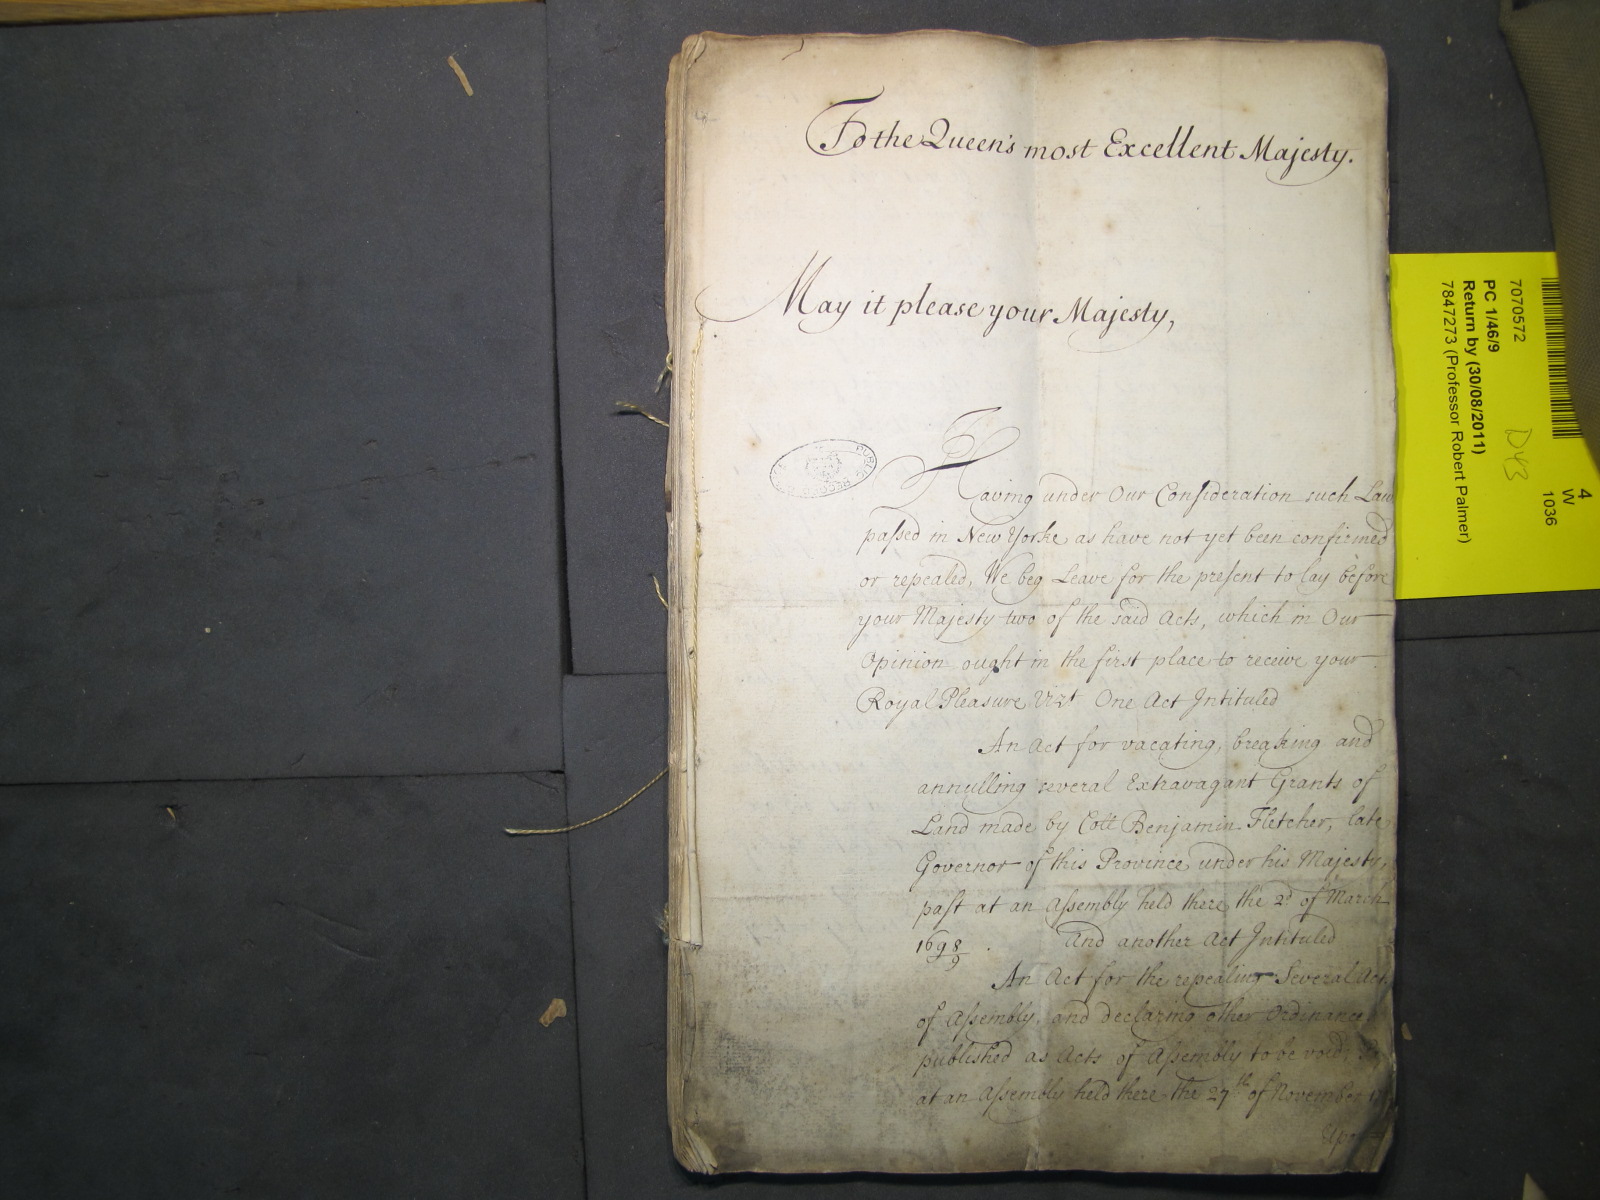 To the Queen's most Excellent Majesty.
May it please your Majesty,
Having under Our Consideration such Law
passed in New Yorke as have not yet been confirmed
or repealed, We beg Leave for the present to lay before
your Majesty two of the said Acts, which in Our
Opinion ought in the first place to receive your
Royal Pleasure Vizt One Act Intituled
An Act for vacating, breaking and
annulling several Extravagant Grants of
Land made by Coll Benjamin Fletcher, late
Governor of this Province under his Majesty,
past at an Assembly held there the 2d of March
1698/9. And another Act Intituled
An Act for the repealing Several Act
of Assembly, and declaring other Ordinance
published as Acts of Assembly to be void;
at an Assembly held there the 27th of November
PUBLIC RECORD
4
W
1036
7070572
D43
PC 1/46/9
Return by (30/08/2011)
7847273 (Professor Robert Palmer)